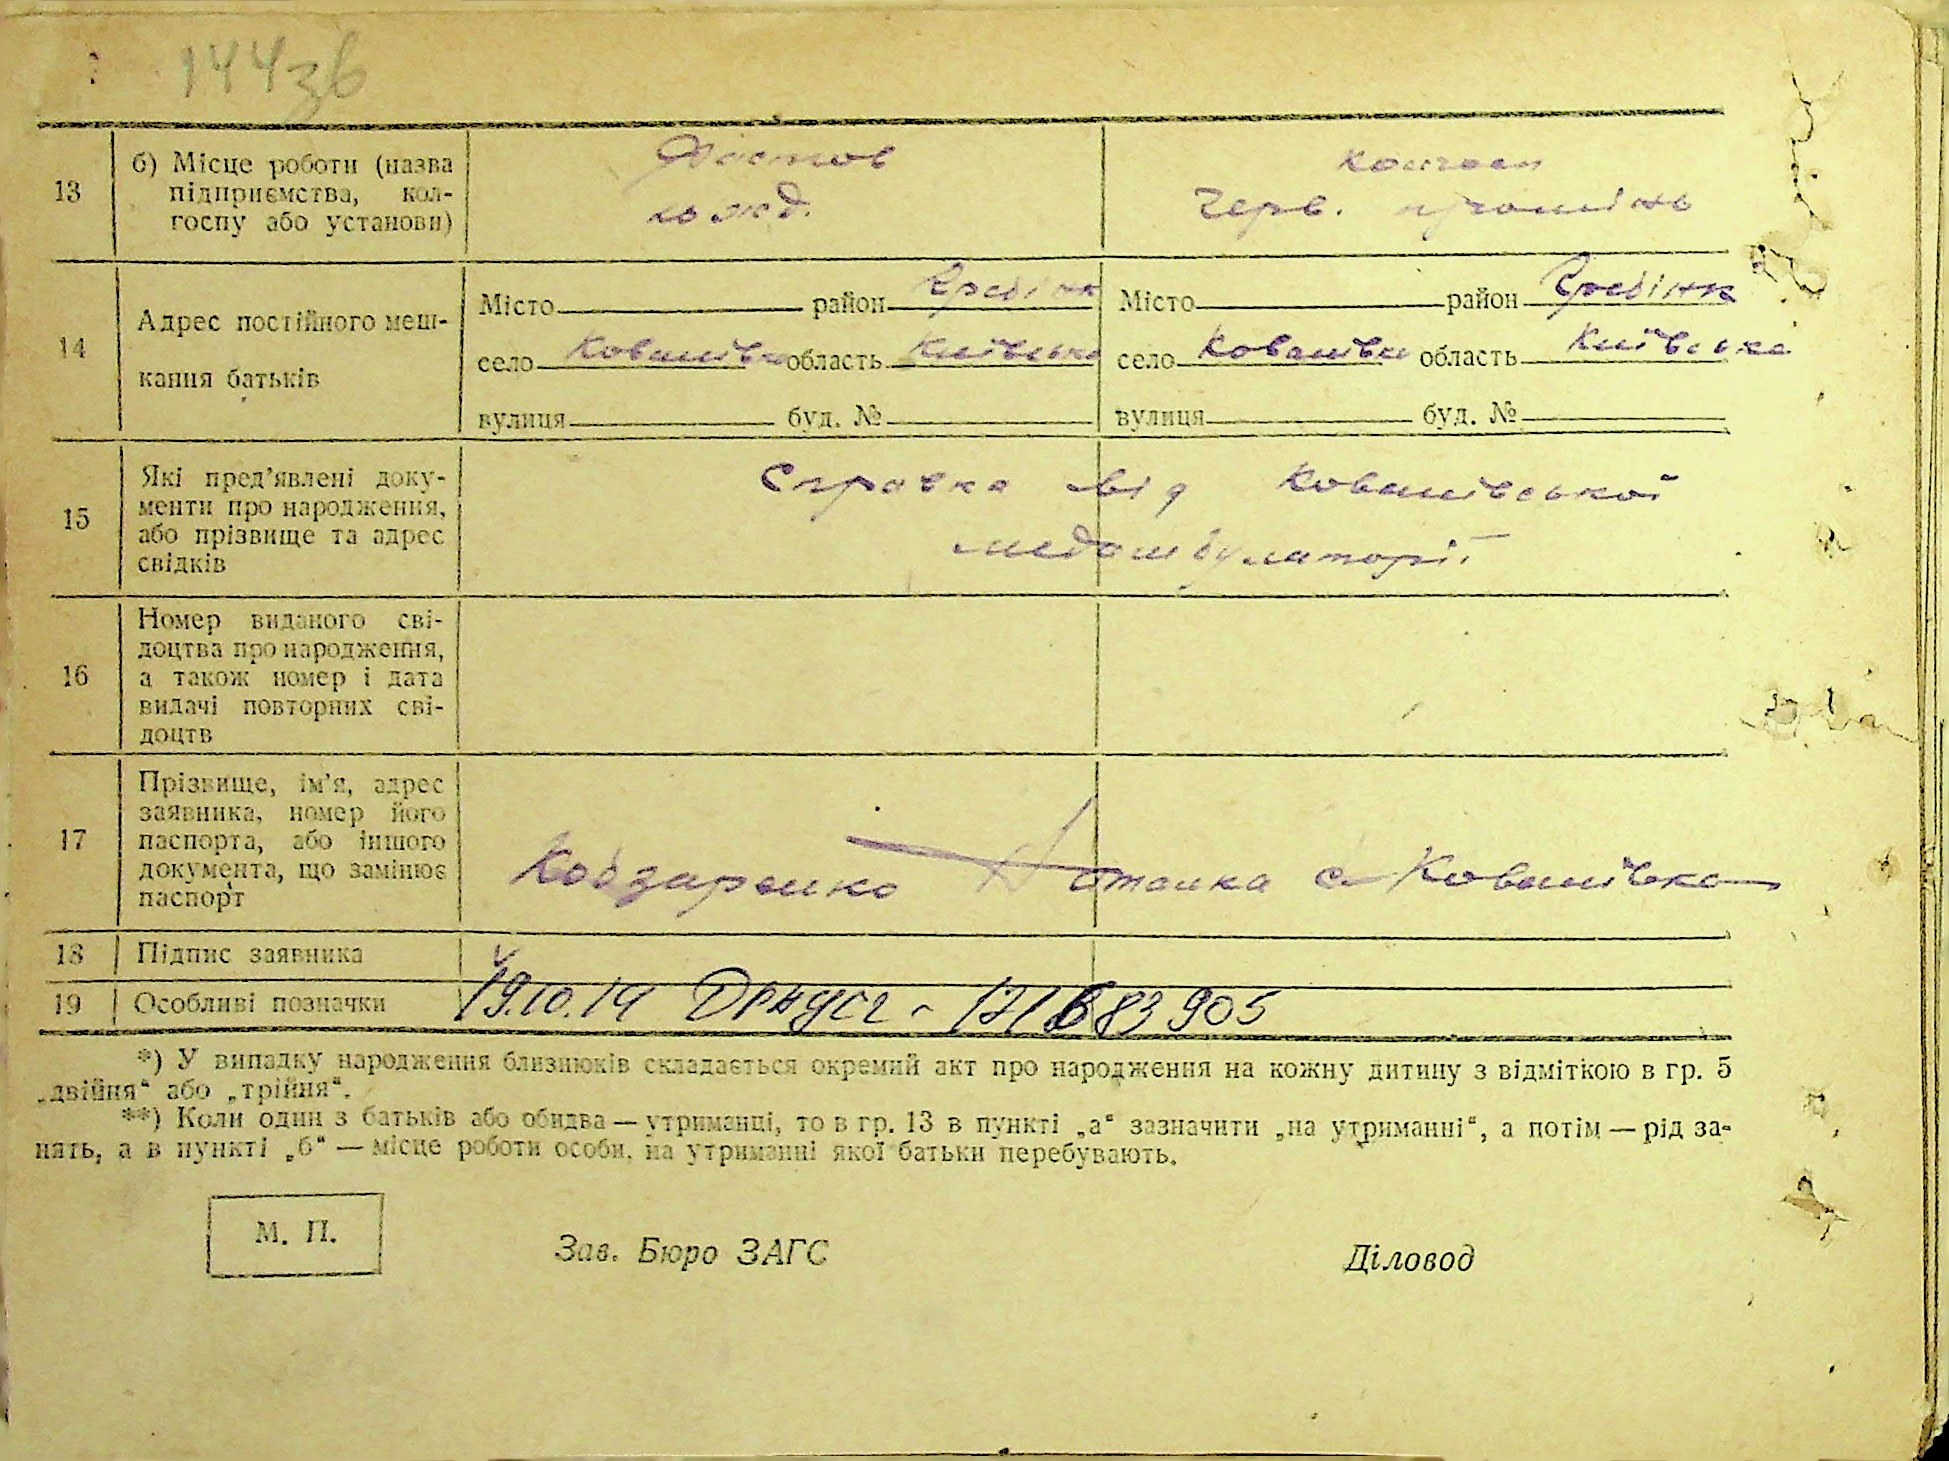 144зв
13
б) Місце роботи (назва
підприємства, кол-
госпу або установи)
Фастов
по жд.
колгосп
Черв. промінь
14
Адрес постійного меш-
кання батьків
Місто район Гребінк
село Кованівка область Київська
вулиця буд. №
Місто район Гребінк
село Кованівка область Київська
вулиця буд. №
15
Які пред'явлені доку-
менти про народження,
або прізвище та адрес
свідків
Справка від Кованівської
медамбулаторії
16
Номер виданого сві-
доцтва про народження,
а також номер і дата
видачі повторних сві-
доцтв
17
Прізвище, ім'я, адрес
заявника, номер його
паспорта, або іншого
документа, що замінює
паспорт
Кобзаренко с. Кованівка
18 Підпис заявника
19 Особливі позначки
19.10.19
*) У випадку народження близнюків складається окремий акт про народження на кожну дитину з відміткою в гр. 5
„двійня“ або „трійня“.
**) Коли один з батьків або обидва — утриманці, то в гр. 13 в пункті „а“ зазначити „на утриманні“, а потім — рід за-
нять, а в пункті „б“ — місце роботи особи, на утриманні якої батьки перебувають.
М. П.
Зав. Бюро ЗАГС
Діловод